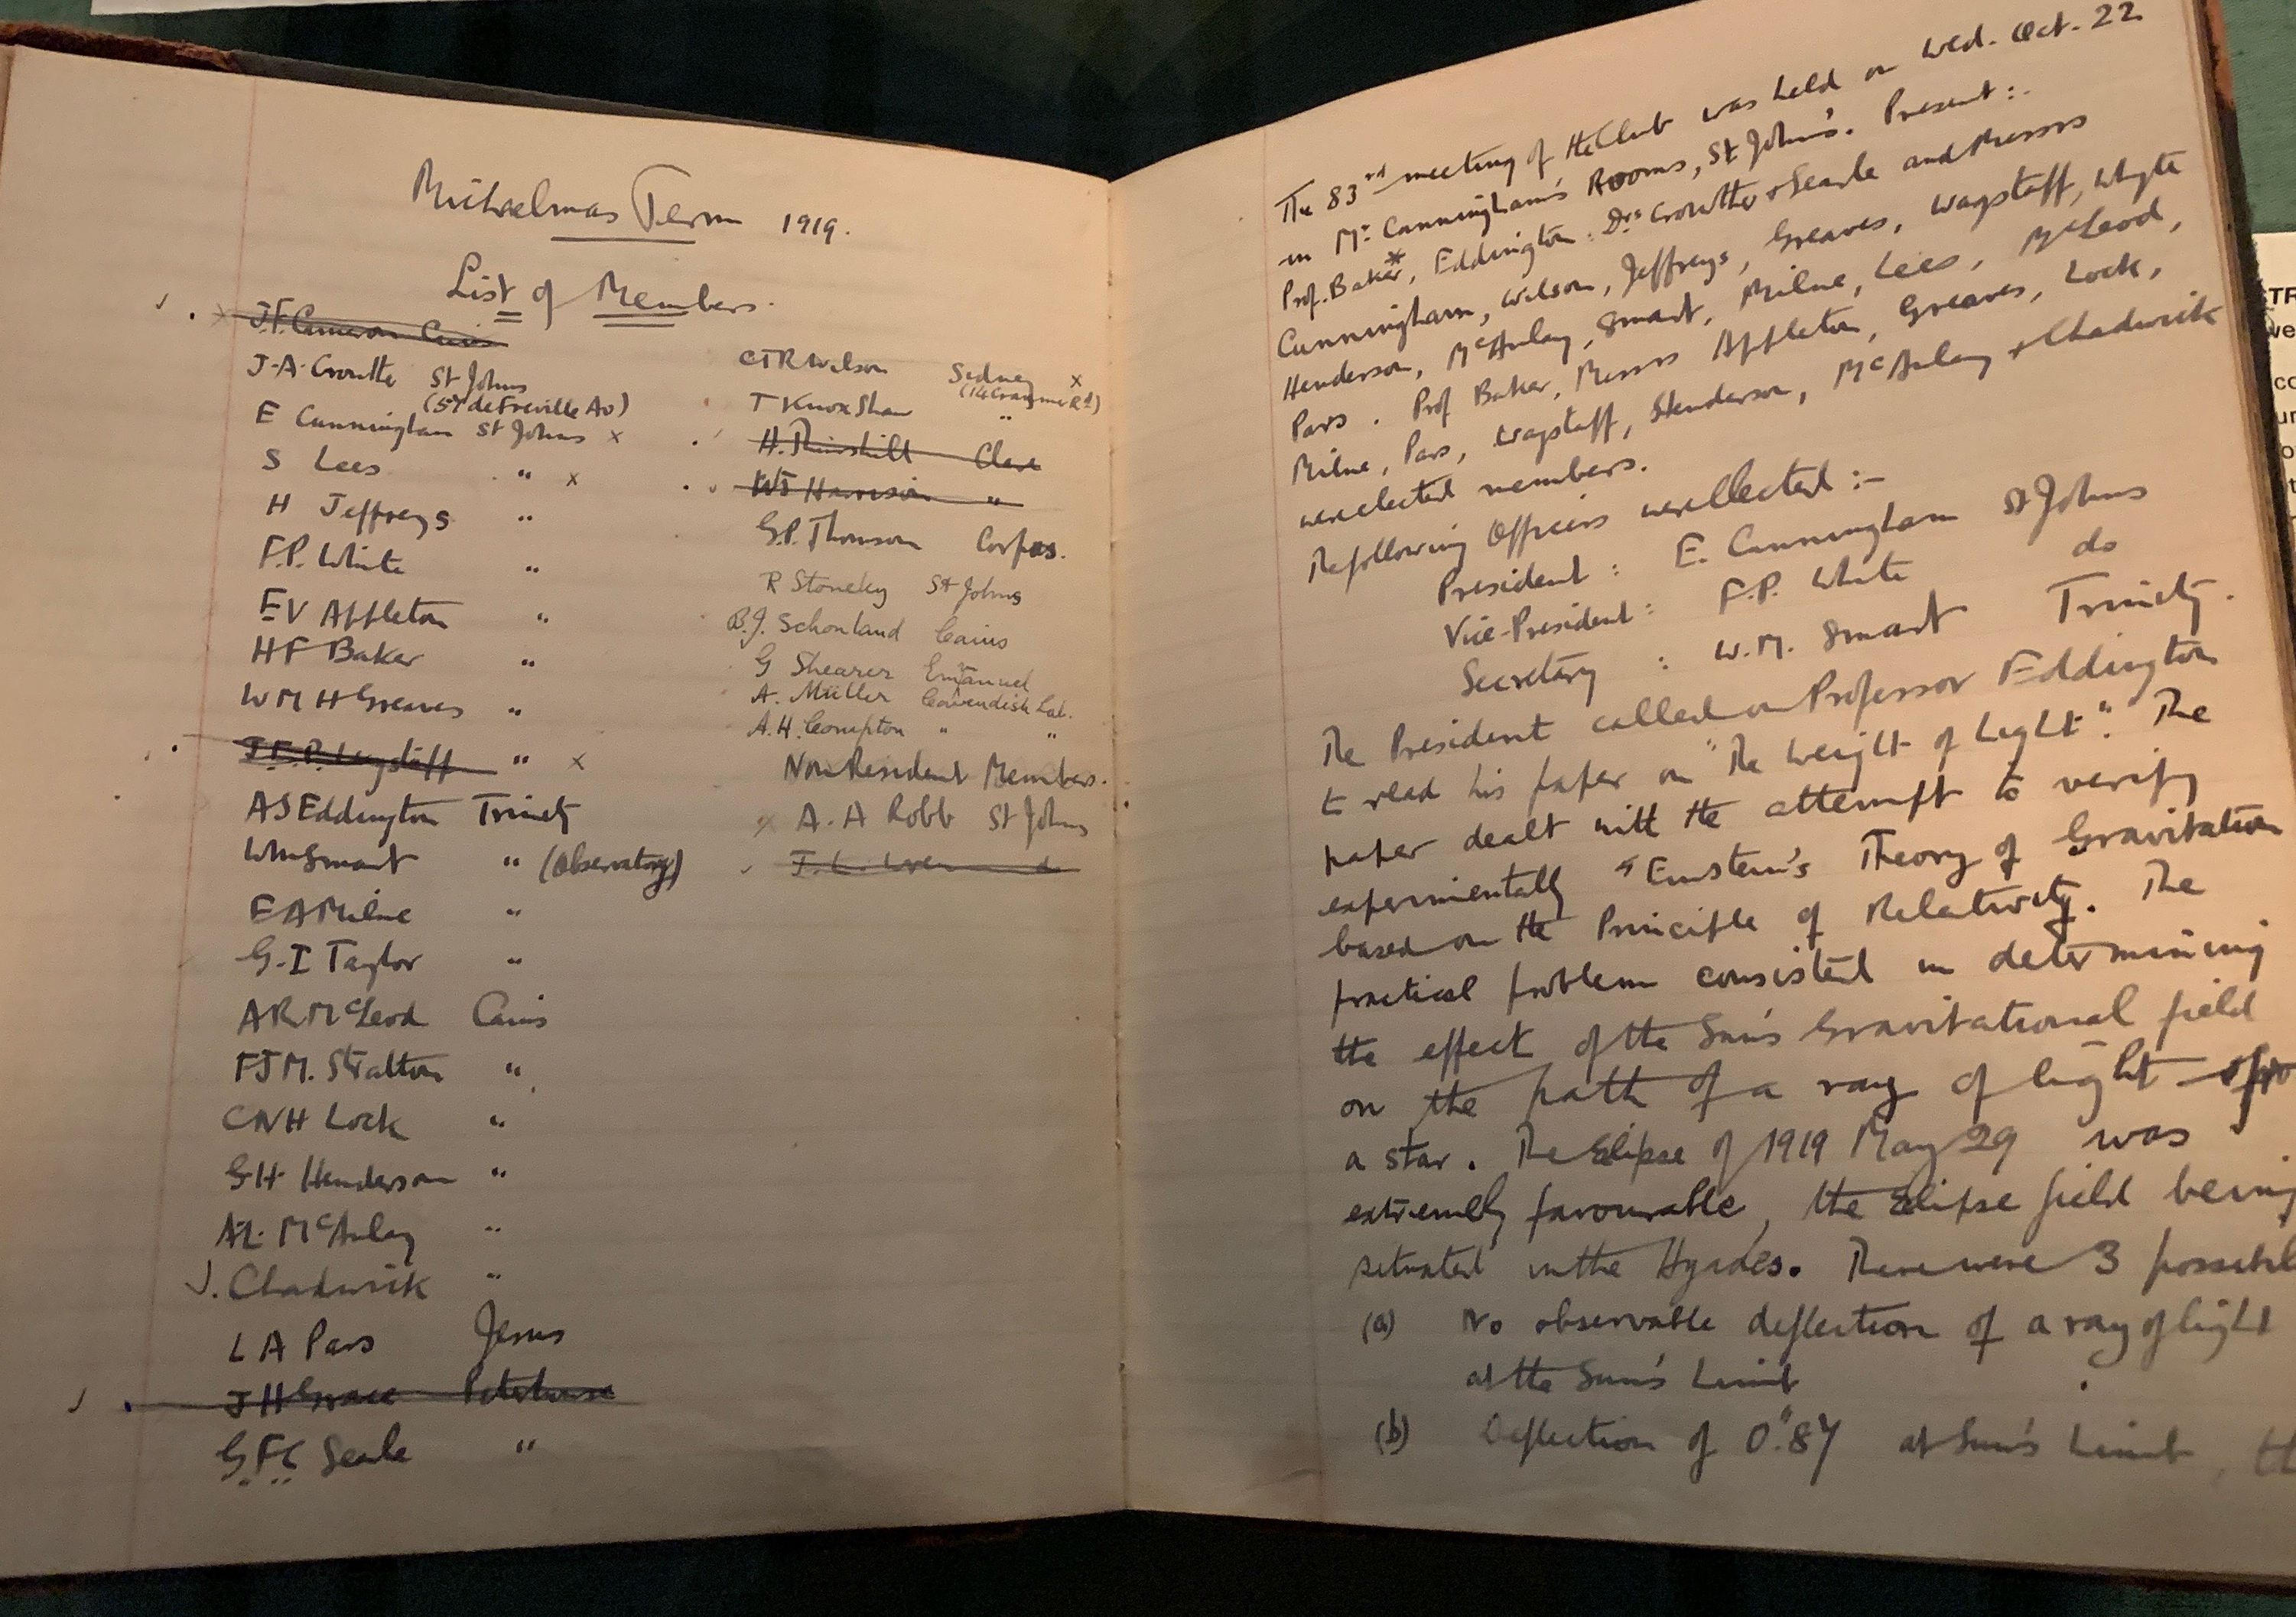 Michaelmas Term 1919.
List of Members.
J.F. Cameron Caius
J.A. Crowther St Johns
(57 de Freville Av)
E Cunningham St Johns x
S Lees " x
H Jeffreys "
F.P. White "
EV Appleton "
HF Baker "
WMH Greaves "
J.E.P. Wagstaff " x
AS Eddington Trinity
WM Smart " (Observatory)
EA Milne "
G.I Taylor "
AR McLeod Caius
FJM. Stratton "
CNH Lock "
GH Henderson "
AL McAulay "
J. Chadwick "
LA Pars Jesus
JH Grace Peterhouse
GFC Searle "
CTR Wilson Sidney x
(14 Cranmer Rd)
T Knox Shaw "
H. Thirkill Clare
WJ Harrison "
G.P. Thomson Corpus.
R Stoneley St Johns
B.J. Schonland Caius
G Shearer Emanuel
A. Müller Cavendish Lab.
A.H. Compton " "
Non Resident Members.
x A.A Robb St Johns
The 83rd meeting of the Club was held on Wed. Oct. 22
in Mr Cunningham's Rooms, St John's. Present:-
Prof. Baker*, Eddington: Drs Crowther & Searle and Messrs
Cunningham, Wilson, Jeffreys, Greaves, Wagstaff, Whyte
Henderson, McAulay, Smart, Milne, Lees, McLeod,
Pars. Prof Baker, Messrs Appleton, Greaves, Lock,
Milne, Pars, Wagstaff, Henderson, McAulay & Chadwick
were elected members.
The following Officers were elected:-
President: E. Cunningham St Johns
Vice-President: F.P. White do
Secretary: W.M. Smart Trinity.
The President called on Professor Eddington
to read his paper on "The Weight of Light". The
paper dealt with the attempt to verify
experimentally "Einstein's Theory of Gravitation
based on the Principle of Relativity. The
practical problem consisted in determining
the effect of the Sun's Gravitational field
on the path of a ray of light
a star. The Eclipse of 1919 May 29 was
extremely favourable, the Eclipse field being
situated in the Hyades. There were 3 possibil
(a) No observable deflection of a ray of light
at the Sun's Limb
(b) Deflection of 0".87 at Sun's Limb,
TR